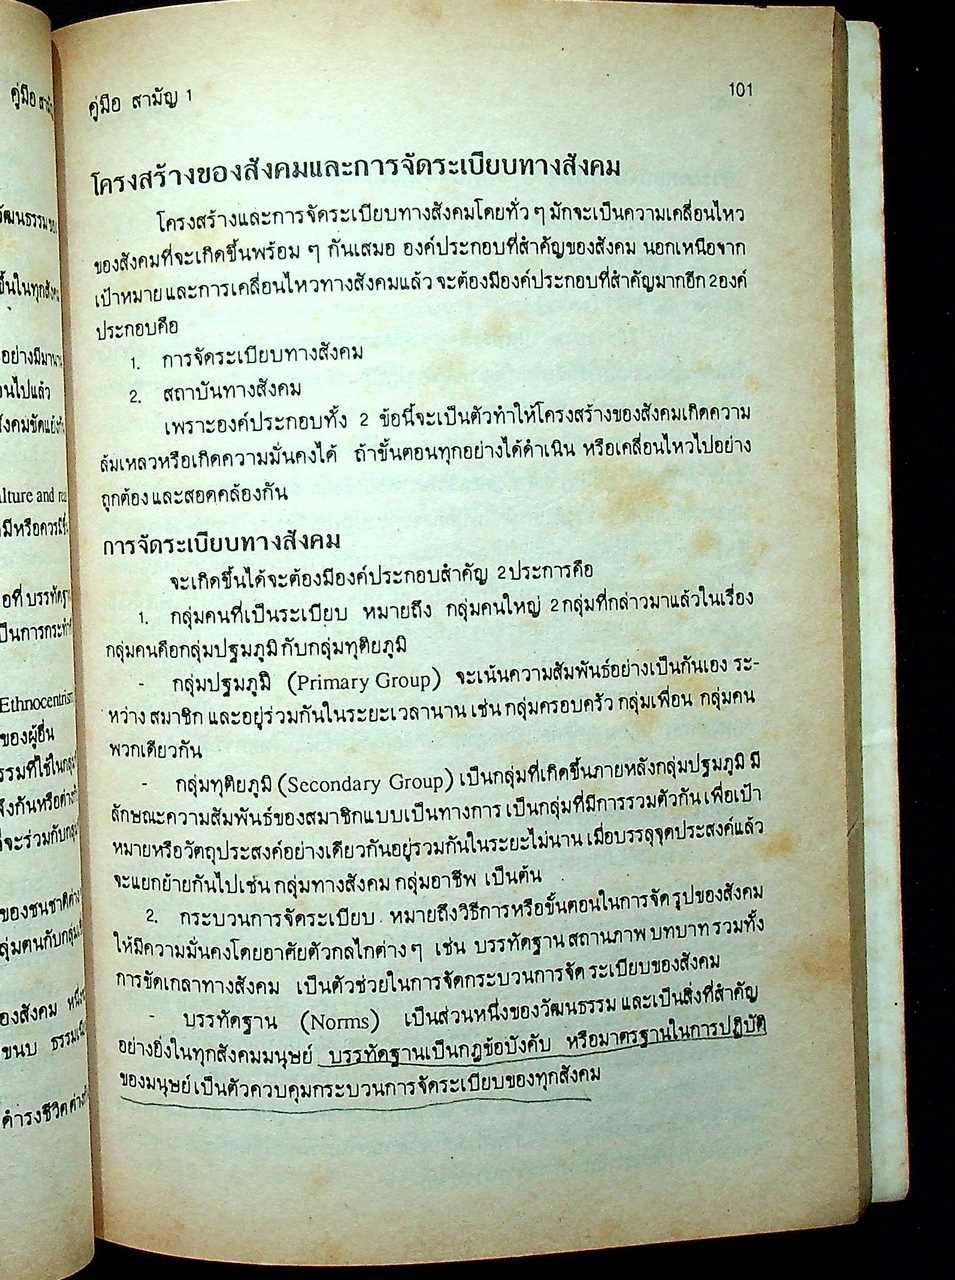 คู่มือ สามัญ 1
101
โครงสร้างของสังคมและการจัดระเบียบทางสังคม
โครงสร้างและการจัดระเบียบทางสังคมโดยทั่ว ๆ มักจะเป็นความเคลื่อนไหว
ของสังคมที่จะเกิดขึ้นพร้อม ๆ กันเสมอ องค์ประกอบที่สำคัญของสังคม นอกเหนือจาก
เป้าหมาย และการเคลื่อนไหวทางสังคมแล้ว จะต้องมีองค์ประกอบที่สำคัญมากอีก 2 องค์
ประกอบคือ
1. การจัดระเบียบทางสังคม
2. สถาบันทางสังคม
เพราะองค์ประกอบทั้ง 2 ข้อนี้จะเป็นตัวทำให้โครงสร้างของสังคมเกิดความ
ล้มเหลวหรือเกิดความมั่นคงได้ ถ้าขั้นตอนทุกอย่างได้ดำเนิน หรือเคลื่อนไหวไปอย่าง
ถูกต้อง และสอดคล้องกัน
การจัดระเบียบทางสังคม
จะเกิดขึ้นได้จะต้องมีองค์ประกอบสำคัญ 2 ประการคือ
1. กลุ่มคนที่เป็นระเบียบ หมายถึง กลุ่มคนใหญ่ 2 กลุ่มที่กล่าวมาแล้วในเรื่อง
กลุ่มคนคือกลุ่มปฐมภูมิ กับกลุ่มทุติยภูมิ
- กลุ่มปฐมภูมิ (Primary Group) จะเน้นความสัมพันธ์อย่างเป็นกันเอง ระ-
หว่าง สมาชิก และอยู่ร่วมกันในระยะเวลานาน เช่น กลุ่มครอบครัว กลุ่มเพื่อน กลุ่มคน
พวกเดียวกัน
- กลุ่มทุติยภูมิ (Secondary Group) เป็นกลุ่มที่เกิดขึ้นภายหลังกลุ่มปฐมภูมิ มี
ลักษณะความสัมพันธ์ของสมาชิกแบบเป็นทางการ เป็นกลุ่มที่มีการรวมตัวกัน เพื่อเป้า
หมายหรือวัตถุประสงค์อย่างเดียวกันอยู่รวมกันในระยะไม่นาน เมื่อบรรลุจุดประสงค์แล้ว
จะแยกย้ายกันไปเช่น กลุ่มทางสังคม กลุ่มอาชีพ เป็นต้น
2. กระบวนการจัดระเบียบ หมายถึงวิธีการหรือขั้นตอนในการจัดรูปของสังคม
ให้มีความมั่นคงโดยอาศัยตัวกลไกต่าง ๆ เช่น บรรทัดฐาน สถานภาพ บทบาท รวมทั้ง
การขัดเกลาทางสังคม เป็นตัวช่วยในการจัดกระบวนการจัดระเบียบของสังคม
- บรรทัดฐาน (Norms) เป็นส่วนหนึ่งของวัฒนธรรม และเป็นสิ่งที่สำคัญ
อย่างยิ่งในทุกสังคมมนุษย์ บรรทัดฐานเป็นกฎข้อบังคับ หรือมาตรฐานในการปฏิบัติ
ของมนุษย์ เป็นตัวควบคุมกระบวนการจัดระเบียบของทุกสังคม